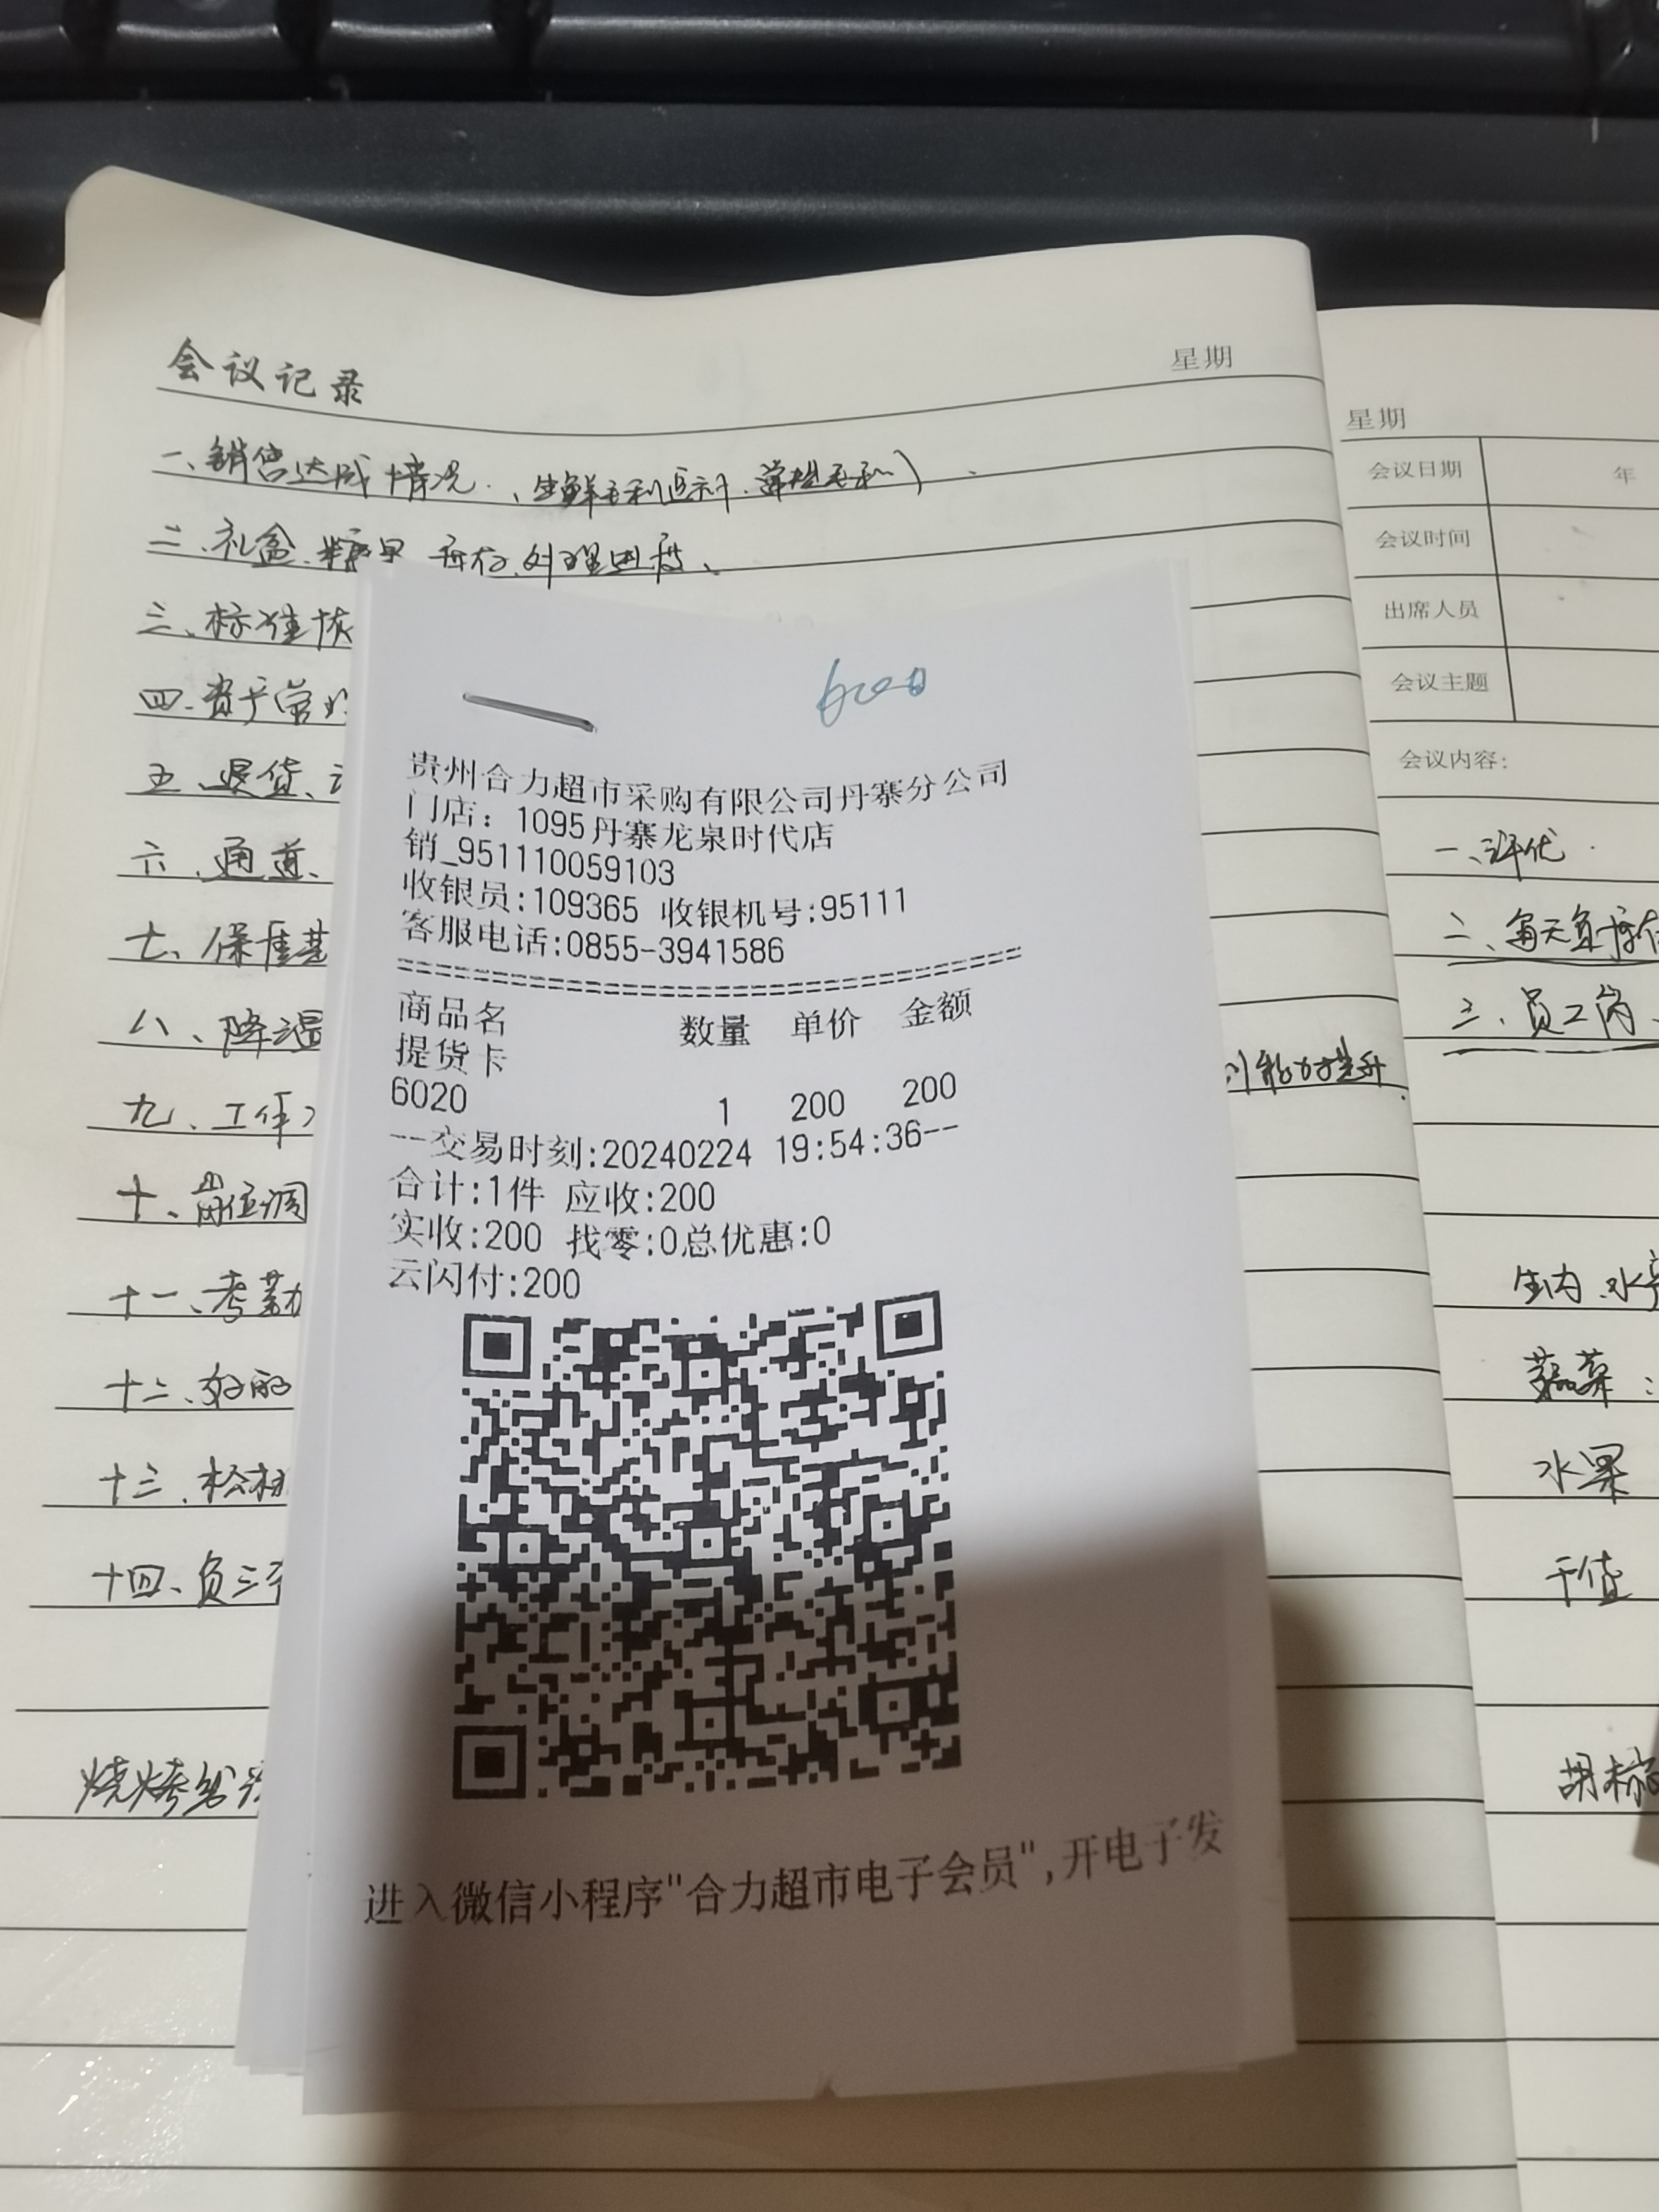 会议记录
星期
一、销售达成情况.、生鲜毛利
二、礼盒、糖果 库存、处理进度、
三、标准恢
四、资产管
五、退货、
六、通道、
七、保质
八、降温
九、工作
十、岗位调
十一、考勤
十二、好的
十三、松桃
十四、负三
烧烤
能力提升.
6000
贵州合力超市采购有限公司丹寨分公司
门店：1095丹寨龙泉时代店
销_951110059103
收银员:109365 收银机号:95111
客服电话:0855-3941586
================================
商品名 数量 单价 金额
提货卡
6020 1 200 200
--交易时刻:20240224 19:54:36--
合计:1件 应收:200
实收:200 找零:0总优惠:0
云闪付:200
进入微信小程序"合力超市电子会员",开电子发
星期
会议日期 年
会议时间
出席人员
会议主题
会议内容:
一、评优.
二、每天负库存
三、员工岗、
生肉、水产
蔬菜:
水果
干货
胡